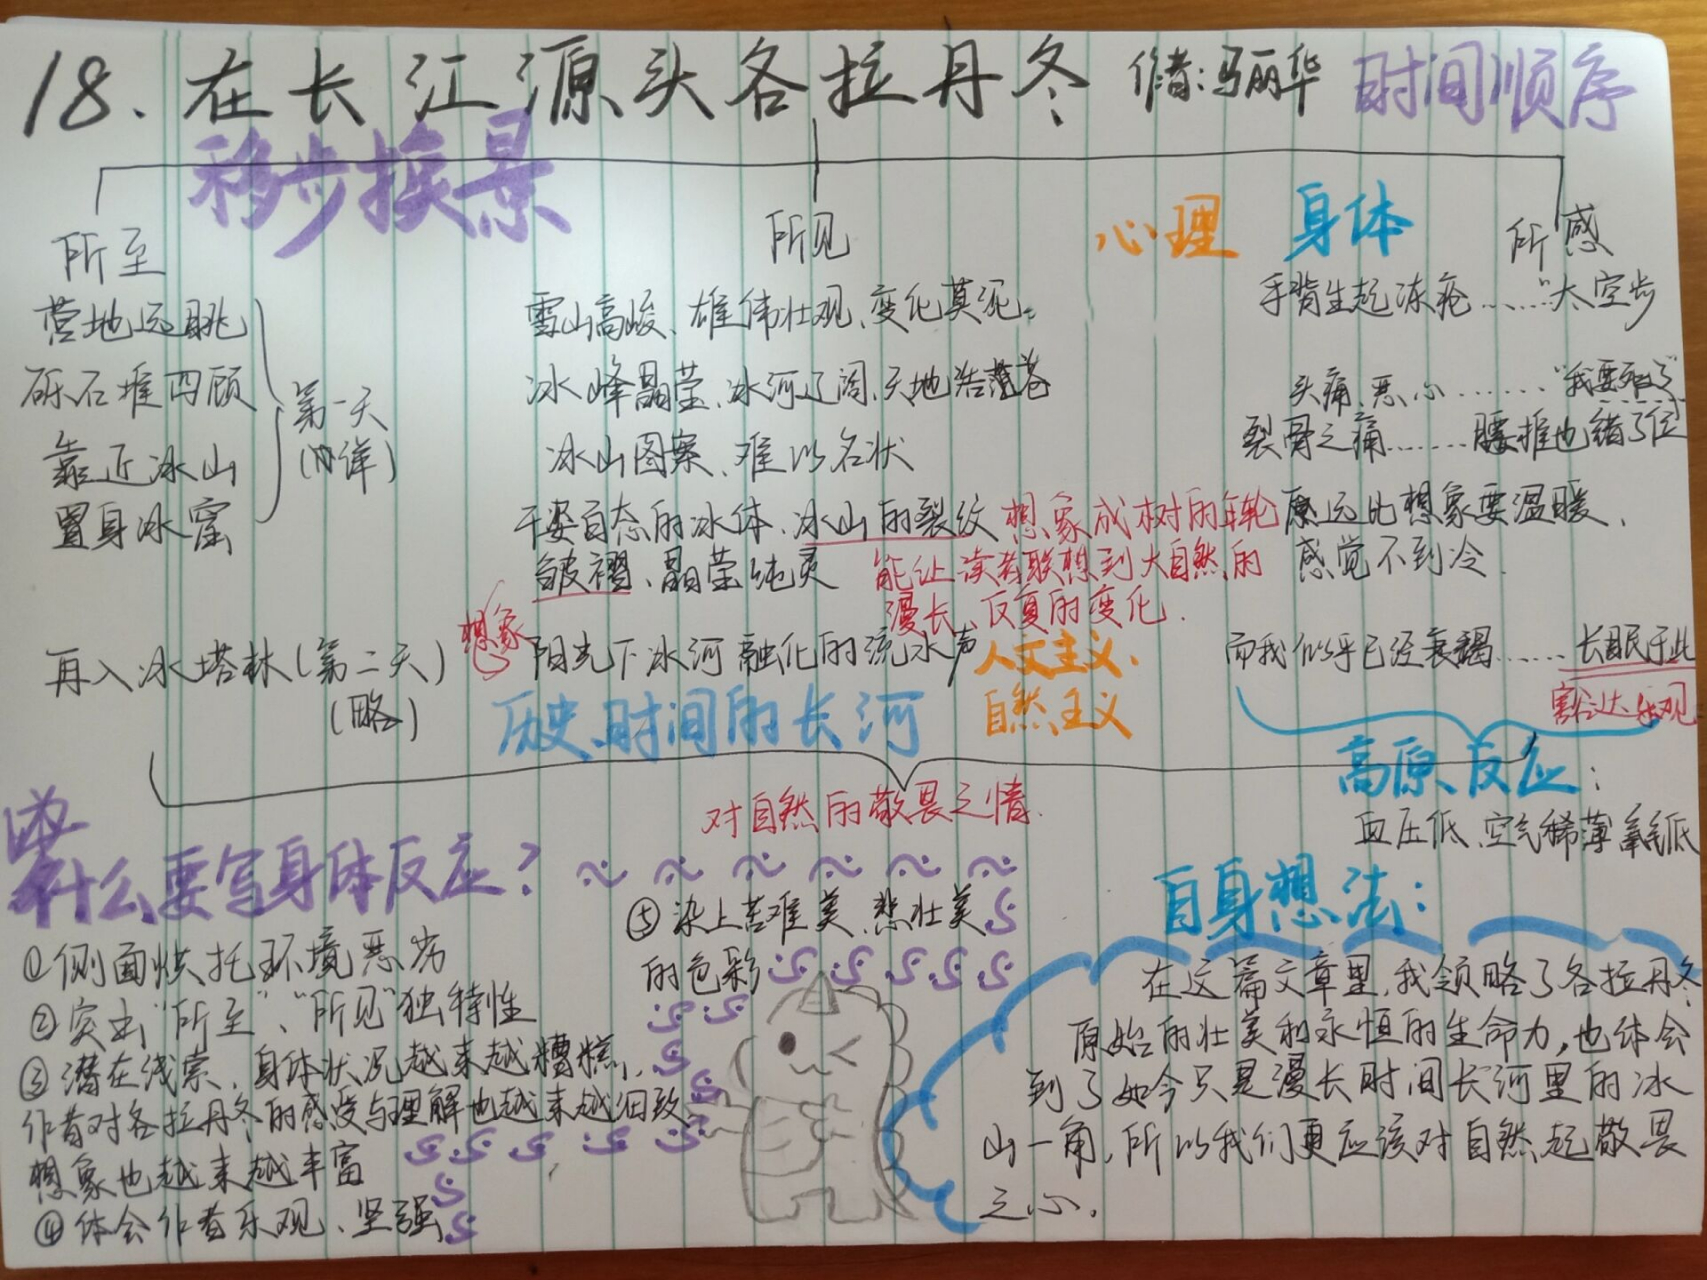 18. 在长江源头各拉丹冬 作者:马丽华 时间顺序
移步换景
所至
所见
心理 身体
所感
营地远眺
雪山高峻、雄伟壮观、变化莫测。
手背生起冻疮……"太空步
砾石堆四顾
冰峰晶莹、冰河辽阔、天地浩荡苍
头痛、恶心……"我要死了"
第一天
(详)
靠近冰山
冰山图案、难以名状
裂骨之痛……腰椎也错了位
置身冰窟
千姿百态的冰体、冰山的裂纹 想象成树的年轮
皱褶、晶莹纯灵 能让读者联想到大自然的
漫长、反复的变化.
原远比想象要温暖、
感觉不到冷.
再入冰塔林(第二天)
(略)
想象
阳光下冰河融化的流水声
人文主义、
自然主义
而我似乎已经衰竭……长眠于此
豁达、乐观
历史、时间的长河
高原反应:
血压低、空气稀薄氧低
对自然的敬畏之情.
为什么要写身体反应?
①侧面烘托环境恶劣
②突出"所至"、"所见"独特性
③潜在线索,身体状况越来越糟糕,
作者对各拉丹冬的感受与理解也越来越细致
想象也越来越丰富
④体会作者乐观、坚强
⑤染上苦难美、悲壮美
的色彩
自身想法:
在这篇文章里,我领略了各拉丹冬
原始的壮美和永恒的生命力,也体会
到了如今只是漫长时间长河里的冰
山一角,所以我们更应该对自然起敬畏
之心.